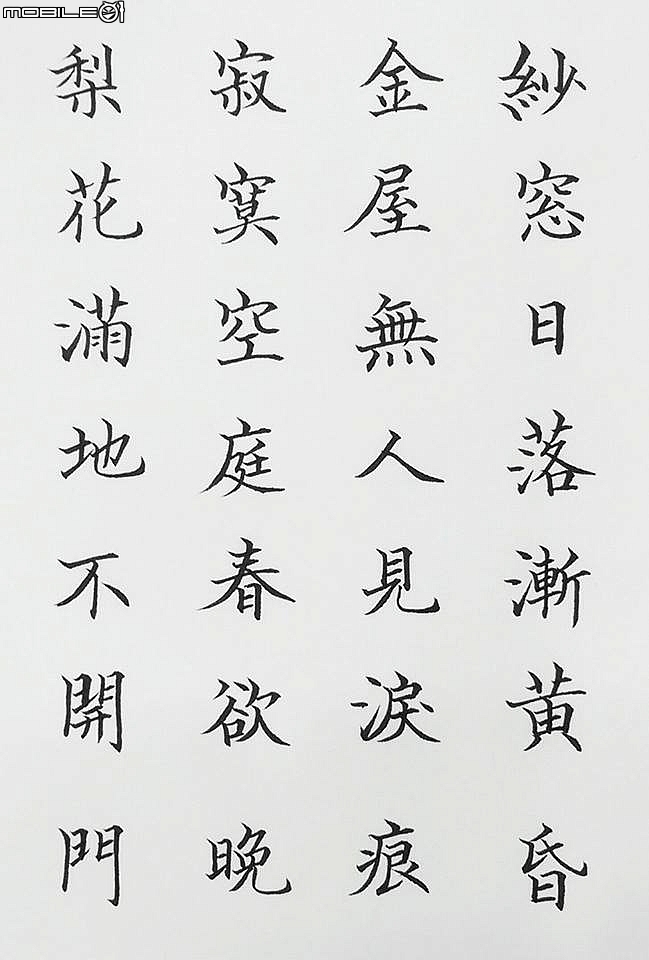 MOBILE01
紗窓日落漸黄昏
金屋無人見淚痕
寂寞空庭春欲晚
梨花滿地不開門